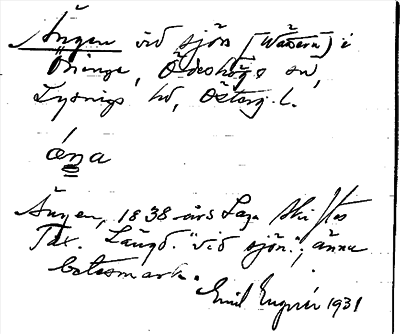 Ängen vid sjön (Vättern) i
Öninge, Ödeshögs sn,
Lysings hd, Österg. l.
áŋa
Ängen, 1838 års Laga Skiftes
Tax. Längd. "vid sjön."; ännu
betesmark.
Emil 1931